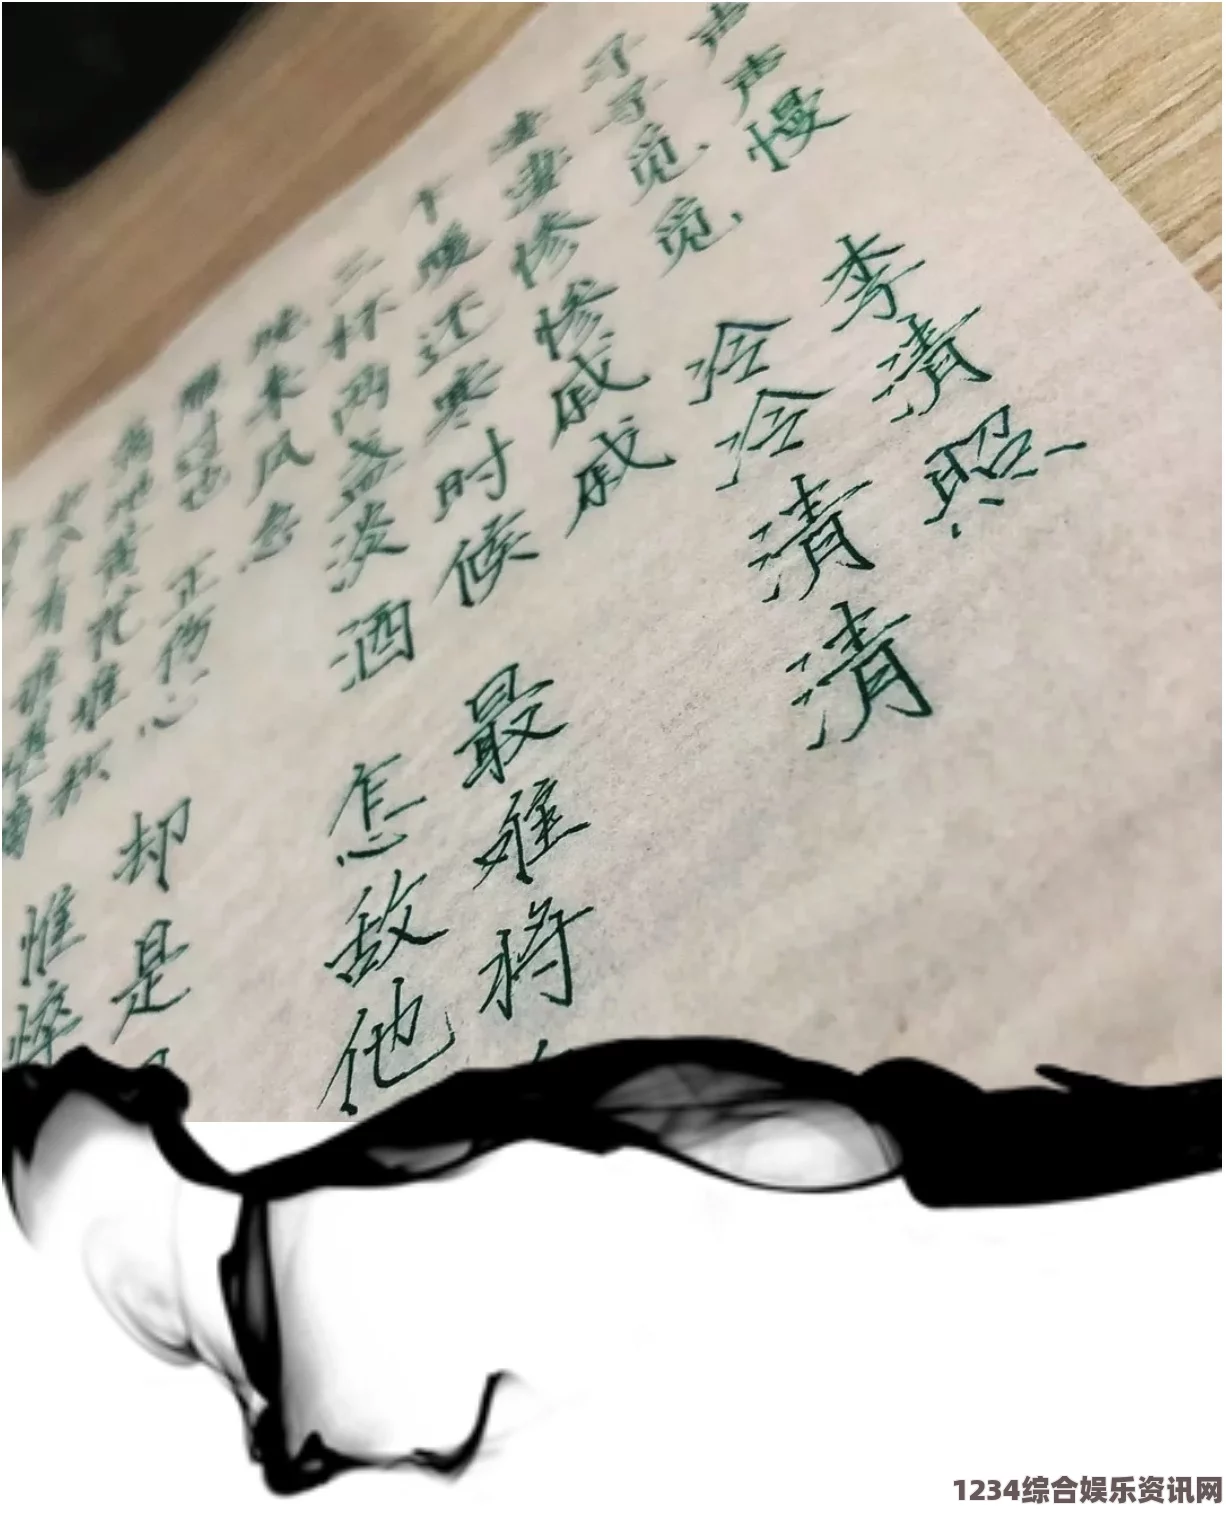 声声慢 李清照
寻寻觅觅，冷冷清清
凄凄惨惨戚戚
乍暖还寒时候 最难将
三杯两盏淡酒 怎敌他
晚来风急
雁过也 正伤心 却是
满地黄花堆积 憔悴
如今有谁堪摘
1234综合娱乐资讯网